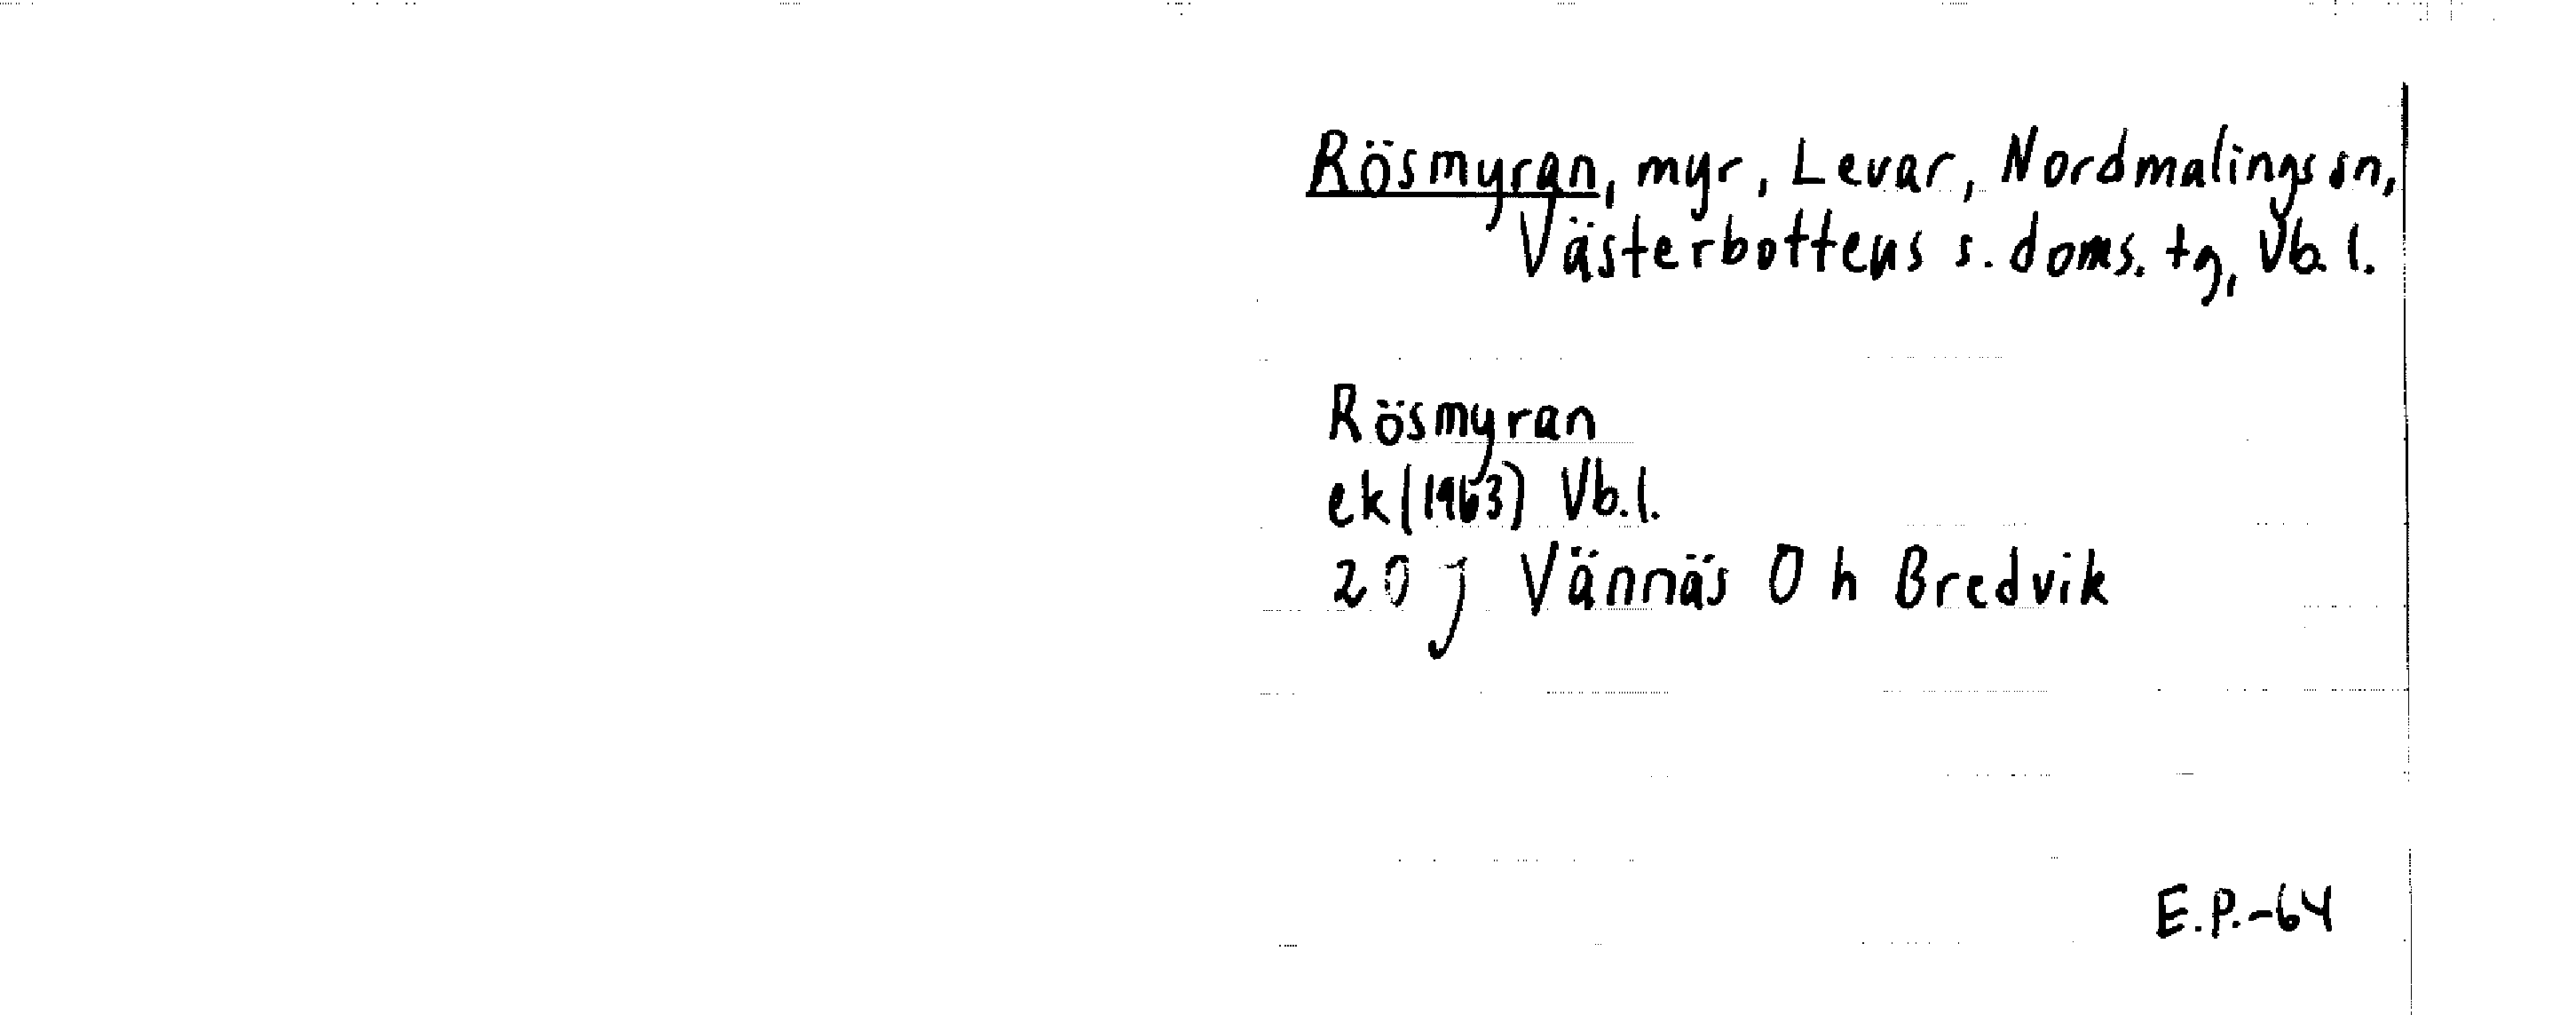 Rösmyran, myr, Levar, Nordmalings sn,
Västerbottens s. doms. tg, Vb. l.
Rösmyran
ek (1963) Vb.l.
20 j Vännäs O h Bredvik
E.P.-64